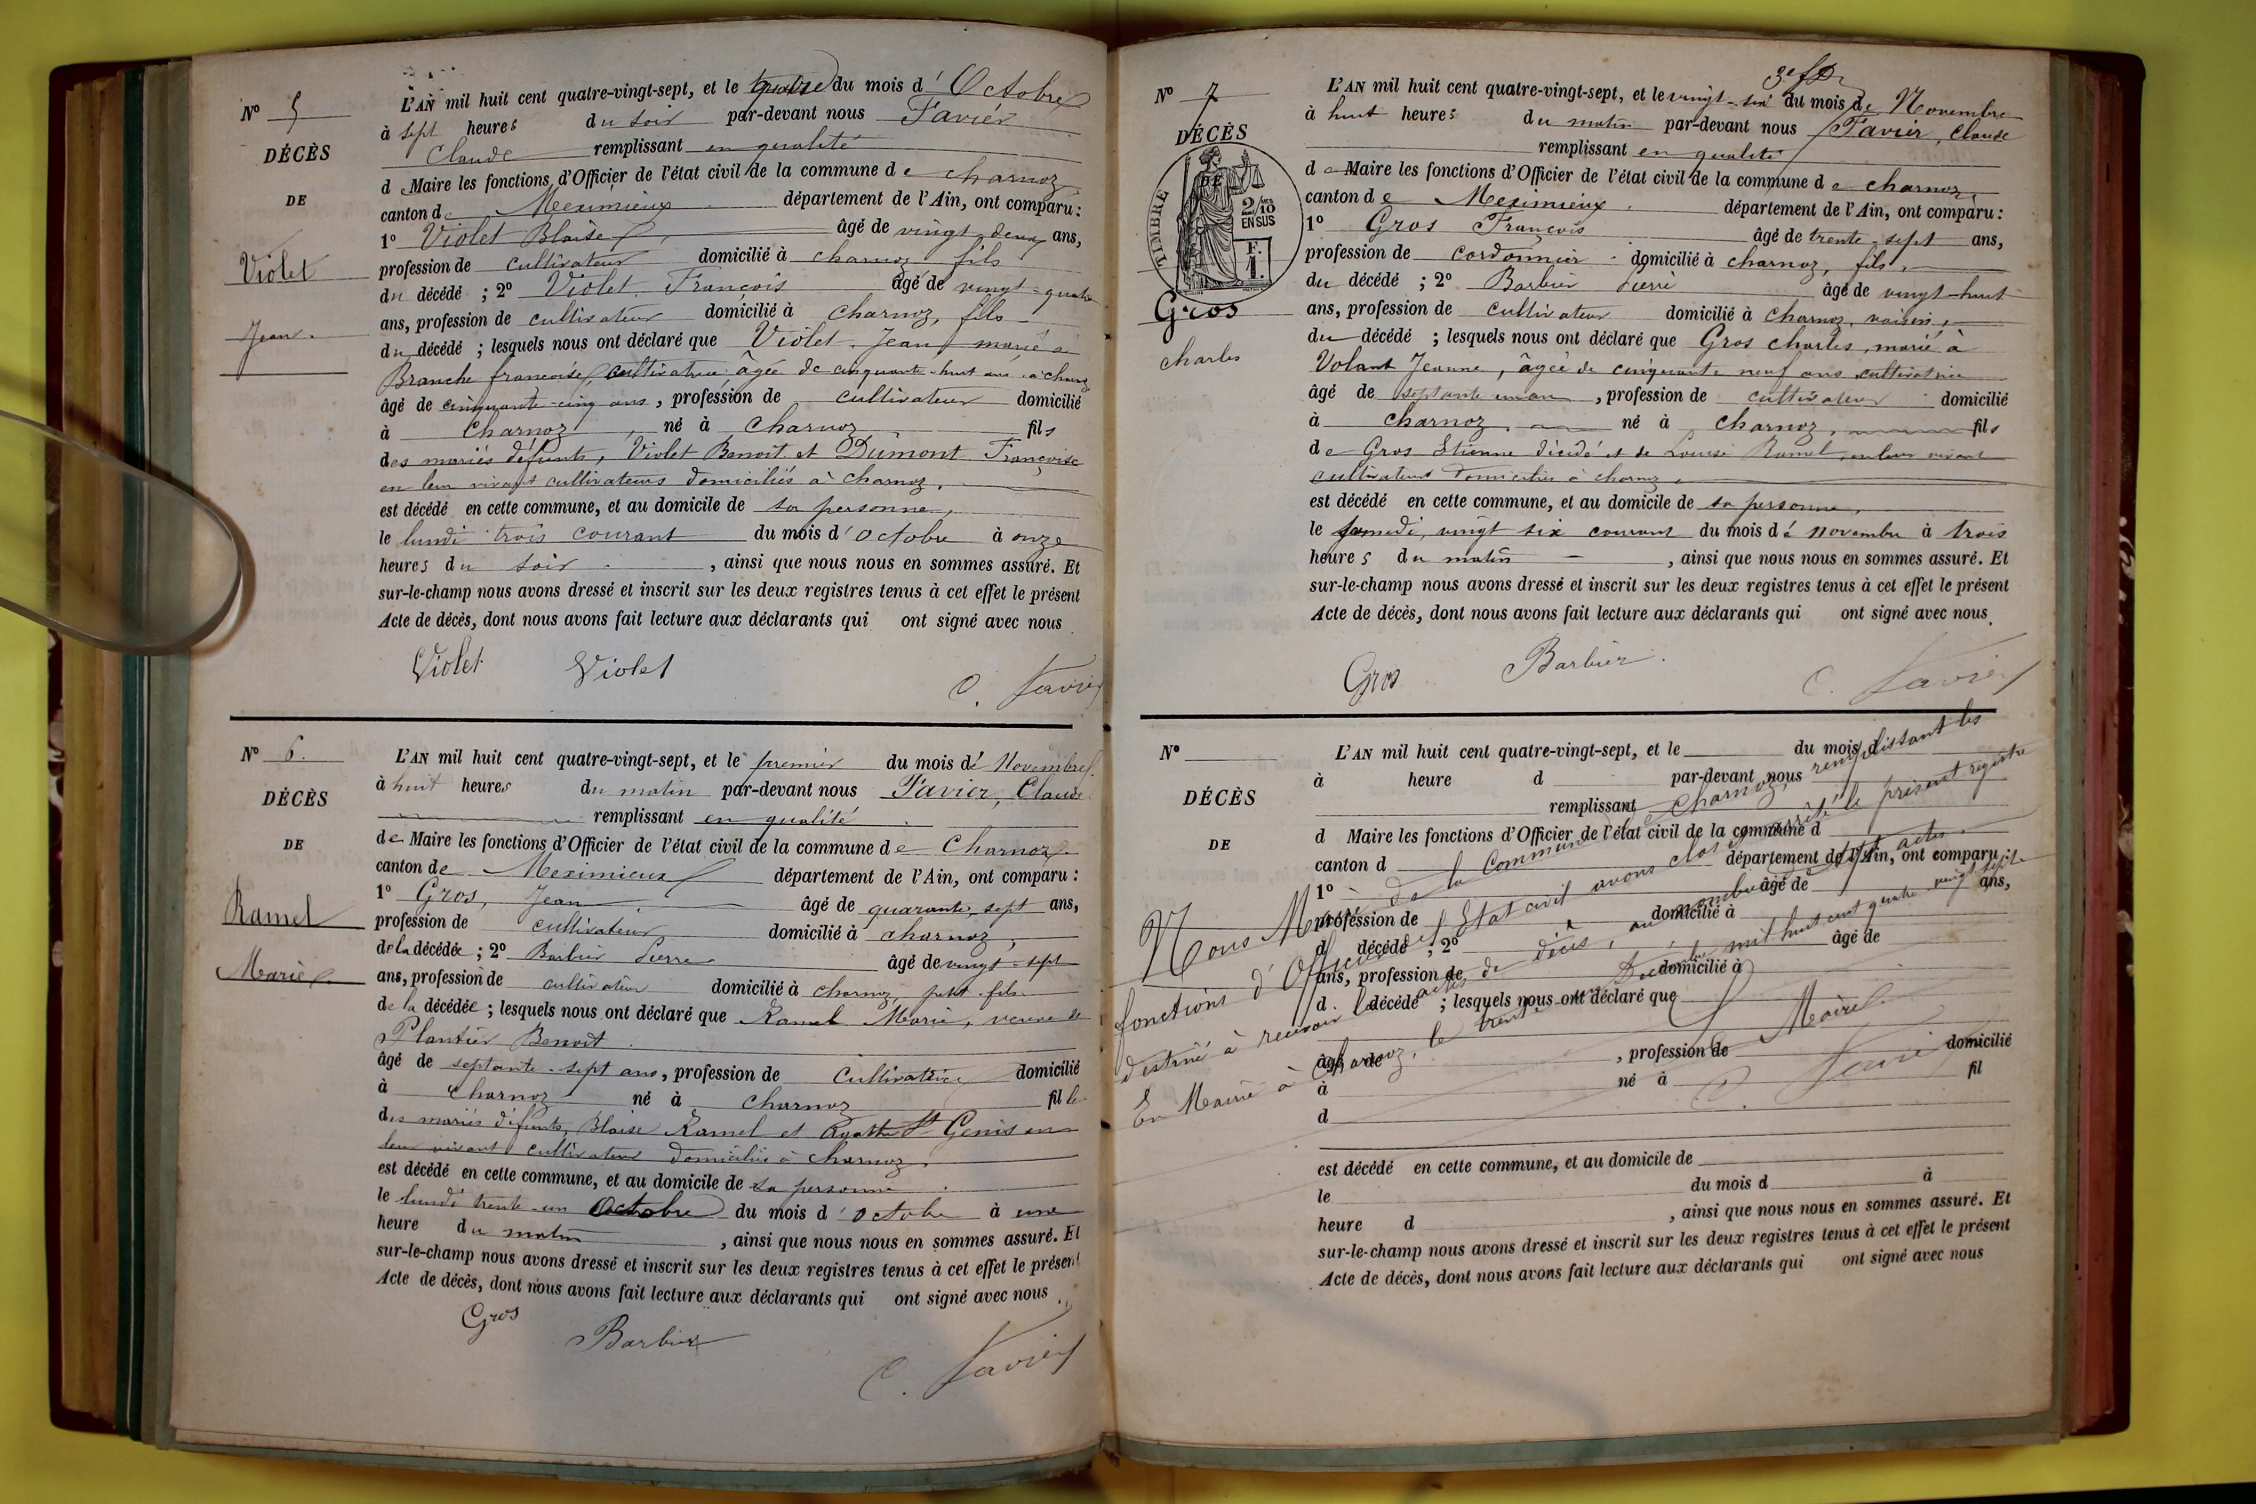 N° 5
DÉCÈS
DE
Violet
Jean
L'AN mil huit cent quatre-vingt-sept, et le quatre du mois d'Octobre
à sept heures du soir par-devant nous Favier
Claude remplissant en qualité
de Maire les fonctions d'Officier de l'état civil de la commune de charnoz
canton de Meximieux département de l'Ain, ont comparu :
1° Violet Blaise âgé de vingt-deux ans,
profession de cultivateur domicilié à charnoz fils
du décédé ; 2° Violet François âgé de vingt-quatre
ans, profession de cultivateur domicilié à charnoz, fils
du décédé ; lesquels nous ont déclaré que Violet Jean marié à
Branche françoise, cultivatrice âgée de cinquante-huit ans à charnoz
âgé de cinquante-cinq ans, profession de cultivateur domicilié
à Charnoz, né à Charnoz fils
des mariés défunts, Violet Benoit et Dumont Françoise
en leur vivant cultivateurs domiciliés à charnoz.
est décédé en cette commune, et au domicile de sa personne,
le lundi trois courant du mois d'octobre à onze
heures du soir, ainsi que nous nous en sommes assuré. Et
sur-le-champ nous avons dressé et inscrit sur les deux registres tenus à cet effet le présent
Acte de décès, dont nous avons fait lecture aux déclarants qui ont signé avec nous
Violet Violet C. Favier
N° 6.
DÉCÈS
DE
Ramel
Marie
L'AN mil huit cent quatre-vingt-sept, et le premier du mois de Novembre
à huit heures du matin par-devant nous Favier, Claude
remplissant en qualité
de Maire les fonctions d'Officier de l'état civil de la commune de Charnoz
canton de Meximieux département de l'Ain, ont comparu :
1° Gros, Jean âgé de quarante-sept ans,
profession de cultivateur domicilié à charnoz,
de la décédée ; 2° Barbier Pierre âgé de vingt-sept
ans, profession de cultivateur domicilié à charnoz, petit-fils
de la décédée ; lesquels nous ont déclaré que Ramel Marie, veuve de
Plantier Benoit
âgé de septante-sept ans, profession de Cultivatrice domicilié
à charnoz né à charnoz fille
des mariés défunts, Blaise Ramel et Agathe St Genis en
leur vivant cultivateur domiciliés à charnoz.
est décédé en cette commune, et au domicile de sa personne
le lundi trente-un Octobre du mois d'octobre à une
heure du matin, ainsi que nous nous en sommes assuré. Et
sur-le-champ nous avons dressé et inscrit sur les deux registres tenus à cet effet le présent
Acte de décès, dont nous avons fait lecture aux déclarants qui ont signé avec nous.
Gros Barbier C. Favier
N° 7
DÉCÈS
DE
TIMBRE
2/10
EN SUS
F.
1.
Gros
charles
L'AN mil huit cent quatre-vingt-sept, et le vingt-six du mois de Novembre
à huit heures du matin par-devant nous Favier, Claude
remplissant en qualité
de Maire les fonctions d'Officier de l'état civil de la commune de charnoz,
canton de Meximieux département de l'Ain, ont comparu :
1° Gros François âgé de trente-sept ans,
profession de cordonnier domicilié à charnoz, fils,
du décédé ; 2° Barbier Pierre âgé de vingt-huit
ans, profession de cultivateur domicilié à charnoz, voisin,
du décédé ; lesquels nous ont déclaré que Gros charles, marié à
Volant Jeanne, âgée de cinquante neuf ans cultivatrice
âgé de septante un an, profession de cultivateur domicilié
à charnoz, né à charnoz, fils
de Gros Etienne décédé et de Louise Ramel, en leur vivant
cultivateurs domiciliés à charnoz.
est décédé en cette commune, et au domicile de sa personne,
le samedi, vingt six courant du mois de novembre à trois
heures du matin, ainsi que nous nous en sommes assuré. Et
sur-le-champ nous avons dressé et inscrit sur les deux registres tenus à cet effet le présent
Acte de décès, dont nous avons fait lecture aux déclarants qui ont signé avec nous.
Gros Barbier. C. Favier
N°
DÉCÈS
DE
L'AN mil huit cent quatre-vingt-sept, et le du mois d
à heure d par-devant nous
remplissant
d Maire les fonctions d'Officier de l'état civil de la commune d
canton d département de l'Ain, ont comparu :
1° âgé de ans,
profession de domicilié à
d décédé ; 2° âgé de
ans, profession de domicilié à
d décédé ; lesquels nous ont déclaré que
âgé de , profession de domicilié
à né à fil
d
est décédé en cette commune, et au domicile de
le du mois d à
heure d , ainsi que nous nous en sommes assuré. Et
sur-le-champ nous avons dressé et inscrit sur les deux registres tenus à cet effet le présent
Acte de décès, dont nous avons fait lecture aux déclarants qui ont signé avec nous
Nous Maire de la Commune de Charnoz, remplissant les
fonctions d'Officier de l'Etat civil avons clos et arrêté le présent registre
destiné à recevoir les actes de décès, au nombre de sept actes.
En Mairie à Charnoz, le trente-un Décembre mil huit cent quatre vingt sept
Maire
C. Favier